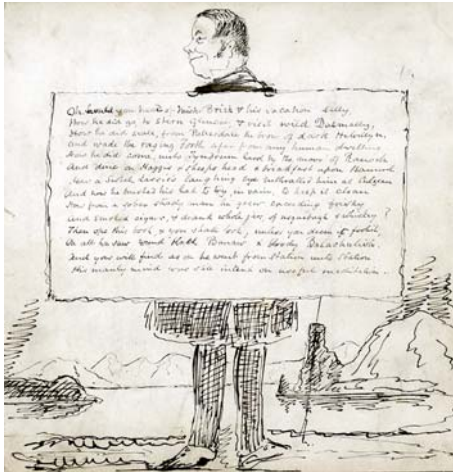 Oh would you know of Mick Brick & his vacation silly
How he did go to stern Glencoe, & visit wild Dalmally,
How he did
and wade the raging Forth afar from any human dwelling
How he did come unto Tyndrum hard by the moor of Rannoch
And dine on Haggis & sheeps head & breakfast upon Bannock
How a Scotch lassie's laughing eye enthralled him at
And now he brushed his hat to try, in vain, to keep it clean
How from a sober steady man he grew exceeding frisky
And smoked cigars, & drank whole gins of usquebagh & whiskey?
Then ope this book, & you shall look, unless you deem it foolish,
On all he saw round &
And you will find as on he went from Station unto Station
His manly mind was still intent on useful meditation.